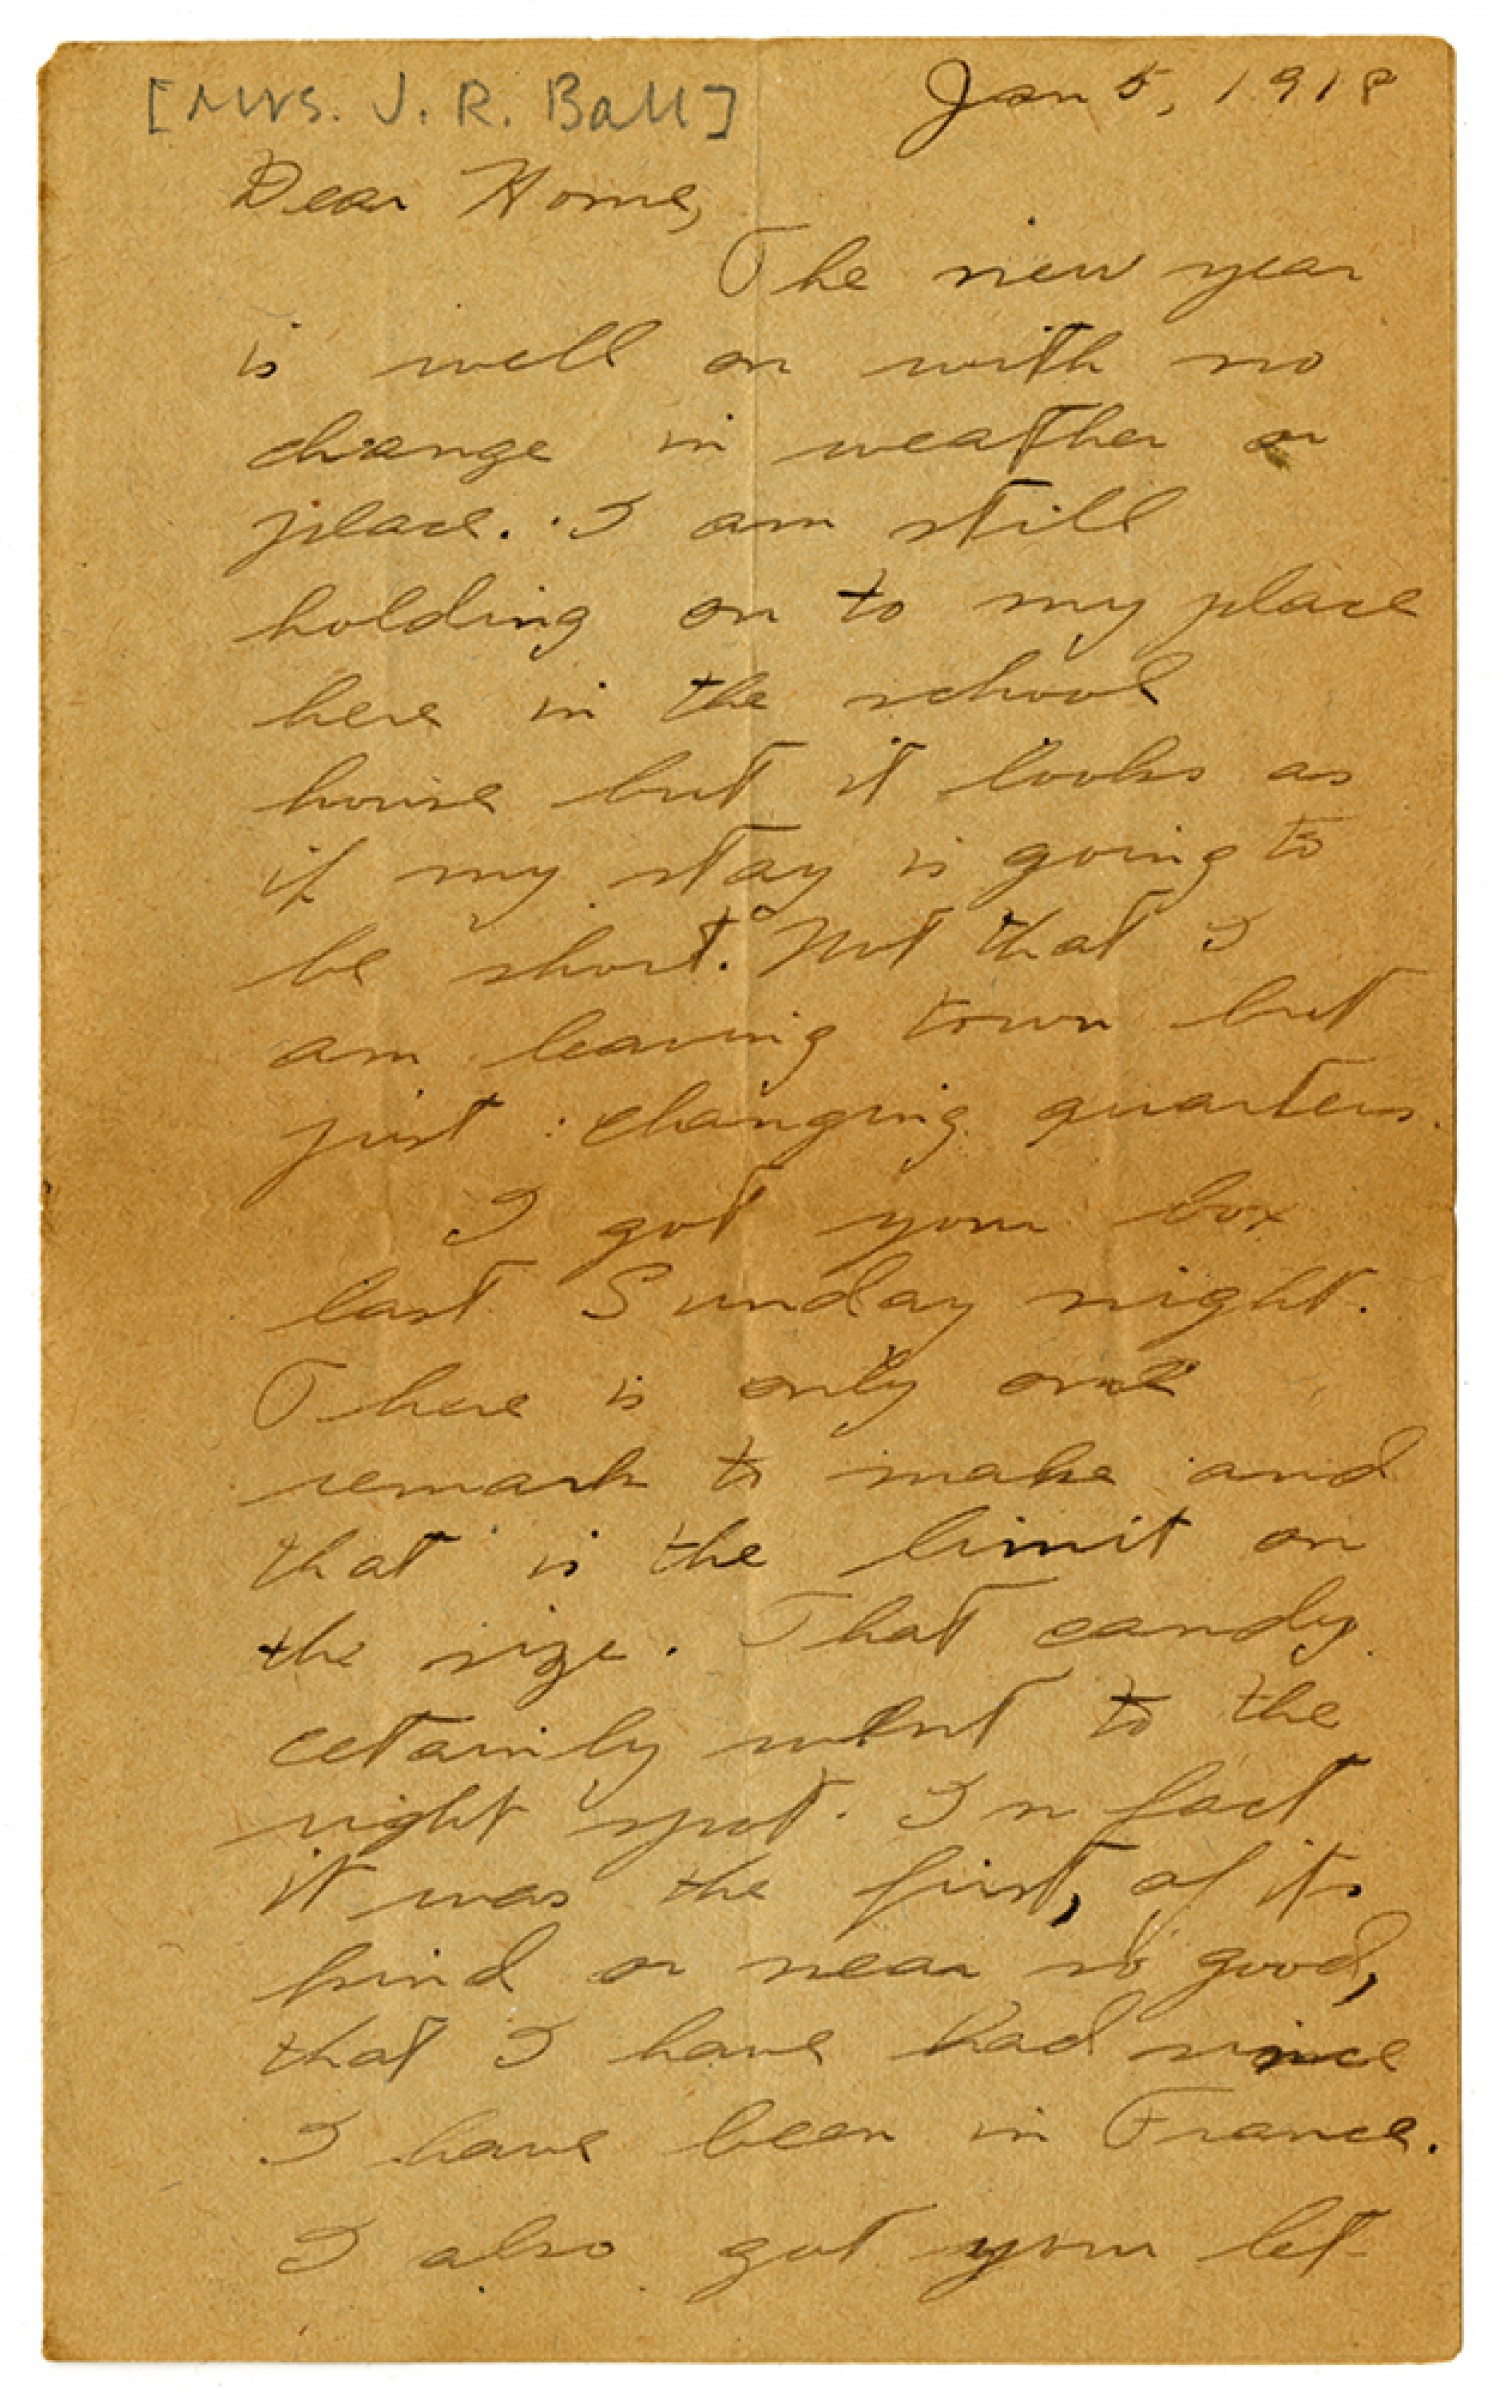 [Mrs. J. R. Ball]
Jan 5, 1918
Dear Home,
The new year
is well on with no
change in weather or
place. I am still
holding on to my place
here in the school
house but it looks as
if my stay is going to
be short. Not that I
am leaving town but
just changing quarters.
I got your box
last Sunday night.
There is only one
remark to make and
that is the limit on
the size. That candy
cetainly went to the
right spot. In fact
it was the first, of its
kind or near so good,
that I have had since
I have been in France.
I also got your let-